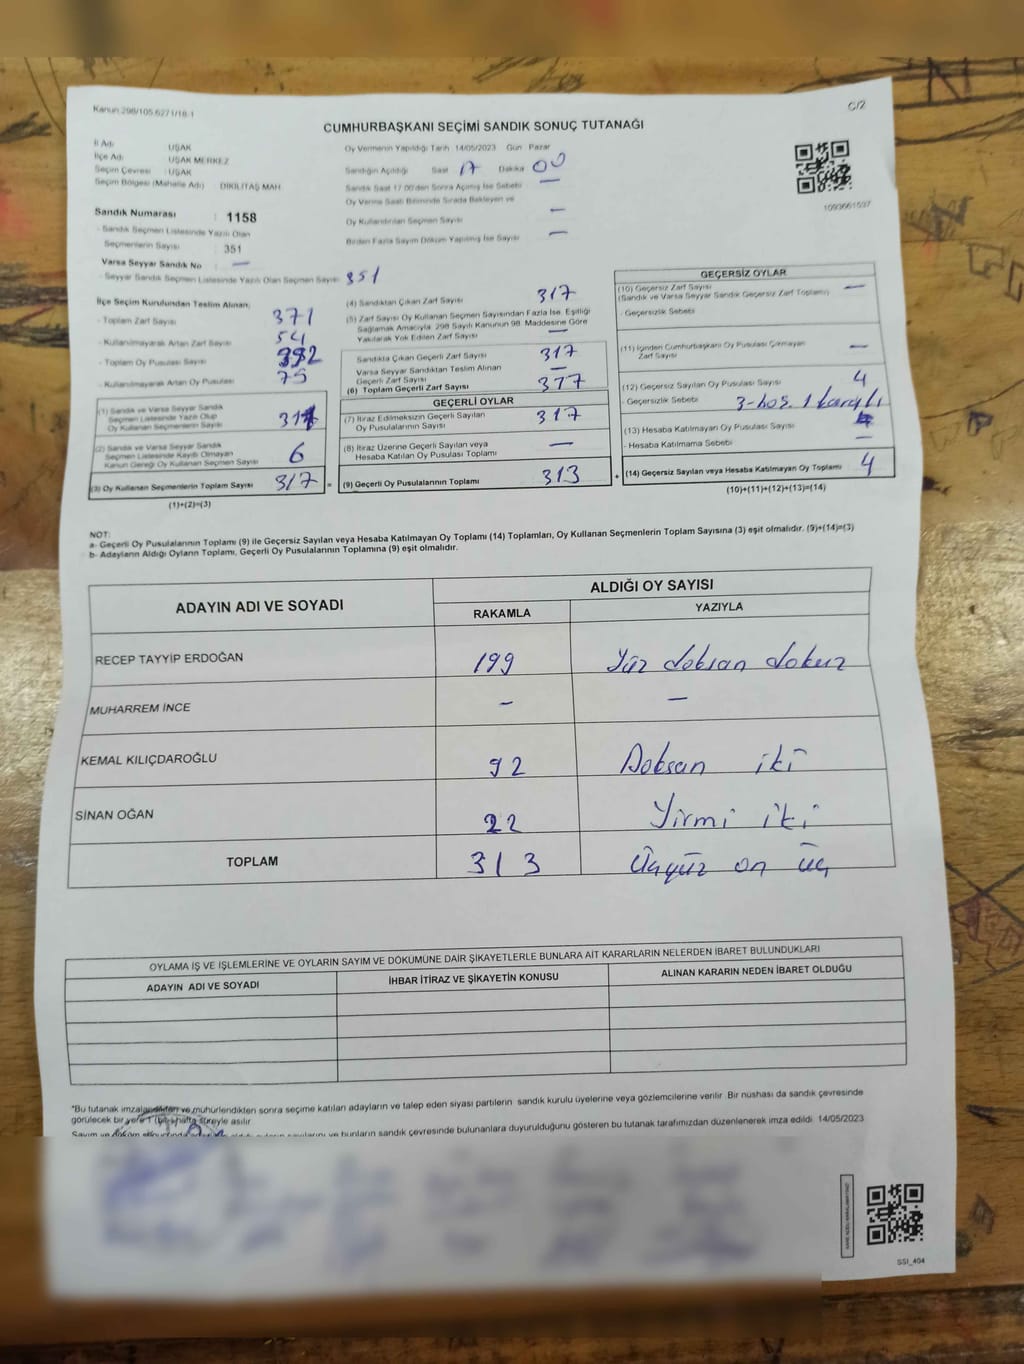 Kanun 298/105.6271/18-1
C/2
CUMHURBAŞKANI SEÇİMİ SANDIK SONUÇ TUTANAĞI
İl Adı : UŞAK
İlçe Adı : UŞAK MERKEZ
Seçim Çevresi : UŞAK
Seçim Bölgesi (Mahalle Adı) : DİKİLİTAŞ MAH
Sandık Numarası : 1158
- Sandık Seçmen Listesinde Yazılı Olan
Seçmenlerin Sayısı : 351
Varsa Seyyar Sandık No : —
- Seyyar Sandık Seçmen Listesinde Yazılı Olan Seçmen Sayısı: 351
Oy Vermenin Yapıldığı Tarih 14/05/2023 Gün Pazar
Sandığın Açıldığı Saat 17 Dakika 00
Sandık Saat 17:00'den Sonra Açılmış İse Sebebi —
Oy Verme Saati Bitiminde Sırada Bekleyen ve
Oy Kullandırılan Seçmen Sayısı —
Birden Fazla Sayım Döküm Yapılmış İse Sayısı —
1093661597
İlçe Seçim Kurulundan Teslim Alınan;
- Toplam Zarf Sayısı 371
- Kullanılmayarak Artan Zarf Sayısı 54
- Toplam Oy Pusulası Sayısı 392
- Kullanılmayarak Artan Oy Pusulası 75
(1) Sandık ve Varsa Seyyar Sandık
Seçmen Listesinde Yazılı Olup
Oy Kullanan Seçmenlerin Sayısı 311
(2) Sandık ve Varsa Seyyar Sandık
Seçmen Listesinde Kayıtlı Olmayan
Kanun Gereği Oy Kullanan Seçmen Sayısı 6
(3) Oy Kullanan Seçmenlerin Toplam Sayısı 317 =
(1)+(2)=(3)
(4) Sandıktan Çıkan Zarf Sayısı 317
(5) Zarf Sayısı Oy Kullanan Seçmen Sayısından Fazla İse, Eşitliği
Sağlamak Amacıyla, 298 Sayılı Kanunun 98. Maddesine Göre
Yakılarak Yok Edilen Zarf Sayısı —
Sandıkta Çıkan Geçerli Zarf Sayısı 317
Varsa Seyyar Sandıktan Teslim Alınan
Geçerli Zarf Sayısı —
(6) Toplam Geçerli Zarf Sayısı 317
GEÇERLİ OYLAR
(7) İtiraz Edilmeksizin Geçerli Sayılan
Oy Pusulalarının Sayısı 317
(8) İtiraz Üzerine Geçerli Sayılan veya
Hesaba Katılan Oy Pusulası Toplamı —
(9) Geçerli Oy Pusulalarının Toplamı 313 +
GEÇERSİZ OYLAR
(10) Geçersiz Zarf Sayısı —
(Sandık ve Varsa Seyyar Sandık Geçersiz Zarf Toplamı)
- Geçersizlik Sebebi
(11) İçinden Cumhurbaşkanı Oy Pusulası Çıkmayan —
Zarf Sayısı
(12) Geçersiz Sayılan Oy Pusulası Sayısı 4
- Geçersizlik Sebebi 3-boş. 1 karalı
(13) Hesaba Katılmayan Oy Pusulası Sayısı
- Hesaba Katılmama Sebebi —
(14) Geçersiz Sayılan veya Hesaba Katılmayan Oy Toplamı 4
(10)+(11)+(12)+(13)=(14)
NOT:
a- Geçerli Oy Pusulalarının Toplamı (9) ile Geçersiz Sayılan veya Hesaba Katılmayan Oy Toplamı (14) Toplamları, Oy Kullanan Seçmenlerin Toplam Sayısına (3) eşit olmalıdır. (9)+(14)=(3)
b- Adayların Aldığı Oyların Toplamı, Geçerli Oy Pusulalarının Toplamına (9) eşit olmalıdır.
ADAYIN ADI VE SOYADI ALDIĞI OY SAYISI
RAKAMLA YAZIYLA
RECEP TAYYİP ERDOĞAN 199 Yüz doksan dokuz
MUHARREM İNCE — —
KEMAL KILIÇDAROĞLU 92 Doksan iki
SİNAN OĞAN 22 Yirmi iki
TOPLAM 313 Üçyüz on üç
OYLAMA İŞ VE İŞLEMLERİNE VE OYLARIN SAYIM VE DÖKÜMÜNE DAİR ŞİKAYETLERLE BUNLARA AİT KARARLARIN NELERDEN İBARET BULUNDUKLARI
ADAYIN ADI VE SOYADI İHBAR İTİRAZ VE ŞİKAYETİN KONUSU ALINAN KARARIN NEDEN İBARET OLDUĞU
*Bu tutanak imzalandıktan ve mühürlendikten sonra seçime katılan adayların ve talep eden siyasi partilerin sandık kurulu üyelerine veya gözlemcilerine verilir. Bir nüshası da sandık çevresinde
görülecek bir yere 1 (bir) hafta süreyle asılır.
Sayım ve döküm bunların sandık çevresinde bulunanlara duyurulduğunu gösteren bu tutanak tarafımızdan düzenlenerek imza edildi. 14/05/2023
SSI_404